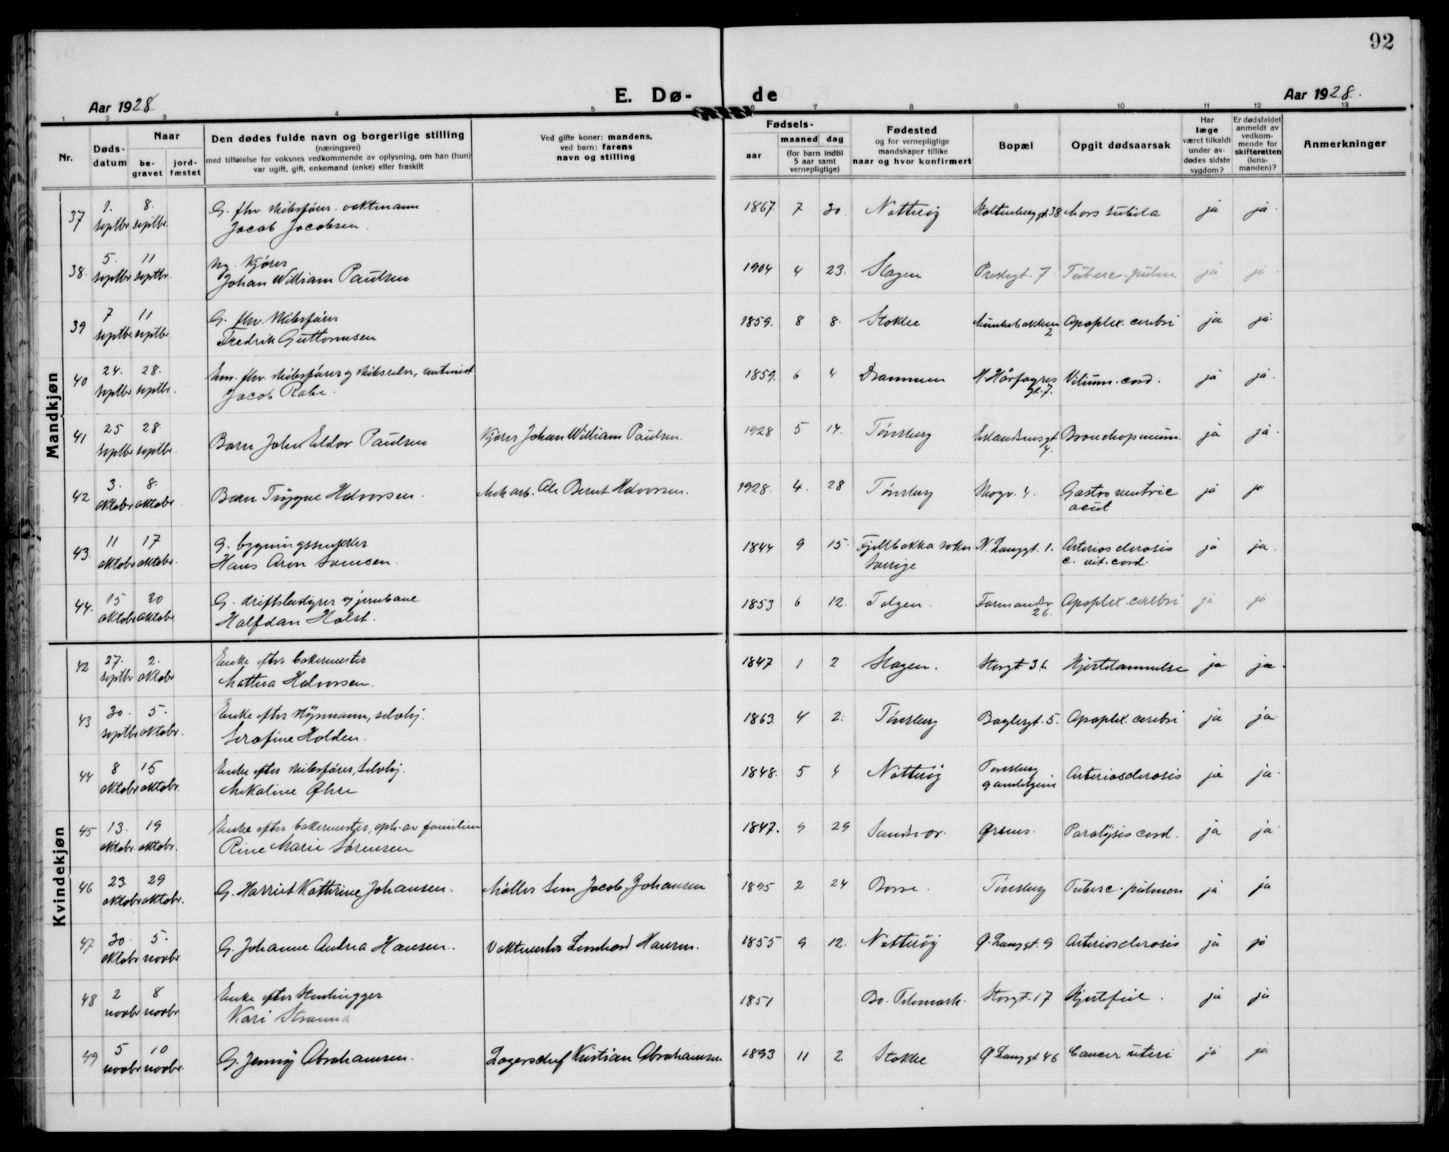 92
Aar 1928
E. Dø- de
Aar 1928.
1 2 3 4 5 6 7 8 9 10 11 12 13
Nr.
Døds-datum
Naar
be-gravet
jord-fæstet
Den dødes fulde navn og borgerlige stilling
(næringsvei)
med tilføielse for voksnes vedkommende av oplysning, om han (hun)
var ugift, gift, enkemand (enke) eller fraskilt
Ved gifte koner: mandens,
ved barn: farens
navn og stilling
Fødsels-
aar
maaned dag
(for barn indtil
5 aar samt
vernepligtige)
Fødested
og for vernepligtige
mandskaper tillike
naar og hvor konfirmert
Bopæl
Opgit dødsaarsak
Har
læge
været tilkaldt
under av-
dødes sidste
sygdom?
Er dødsfaldet
anmeldt av
vedkom-
mende for
skifteretten
(lens-
manden)?
Anmerkninger
Mandkjøn
37 1. septbr 8. septbr. G. fhv. skibsfører vaktmann
Jacob Jacobsen. 1867 7 20. Nøtterøy 38 Mors subita ja ja
38. 5. septbr 11 septbr. Ug. kjører
Johan William Paulsen 1904 4 23. Slagen Prestegt. 7. Tuberc. pulm ja ja
39 7 septbr 11 septbr. G. fhv. skibsfører
Fredrik Guttormsen 1859. 8 8. Stokke Munkebakken 2 Apoplex. cerebri ja ja
40 24. septbr 28. septbr. Em. fhv. skibsfører og skibsreder,
Jacob Rabe. 1859. 6 4 Drammen H. Hårfagres gt. 7. Vitium. cord. ja ja.
41 25 septbr 28. septbr. Barn John Eldor Paulsen Kjører Johan William Paulsen. 1928 5 14. Tønsberg 4. Bronchopneum. ja ja.
42 3. oktobr 8. oktobr Barn Trygve Halvorsen. Ole Bernt Halvorsen. 1928. 4. 28 Tønsberg Skogv. 4. Gastro enteric
acut ja ja
43. 11 oktobr 17 oktobr. G. bygningssnekker
Hans Aron 1844 9 15. Fjellbakka sokn
Sverige N. Langgt. 1. Arteriosclerosis
c. vit. cord. ja ja.
44. 15 oktobr 20 oktobr. G. driftsbestyrer v/jernbane
Halfdan Holst. 1853 6 12. Tolgen. Farmandsv
26. Apoplex. cerebri ja ja
Kvindekjøn
42 27. septbr 2. oktobr Enke efter bakermester
Mathea Halvorsen. 1847 1 2 Slagen. Storgt 36 Hjertelammelse ja ja.
43 30. septbr 5. oktobr. Enke efter styrmann, selvej.
Serafine Holden. 1863 4 2. Tønsberg Baglergt. 5. Apoplex. cerebri ja ja
44 8 oktobr 15 oktobr. Enke efter skibsfører, selveij.
Mikaline Øhre 1848. 5 4 Nøtterøy Tønsberg
gamlehjem Arteriosclerosis ja ja.
45 13. oktobr. 19 oktobr. Enke efter bakermester, oph. av familien
Rine Marie Sørensen 1847. 9 29 Sandsvær. Ørsnes. Paralysis cord. ja ja
46 23 oktobr 29 oktobr. G. Harriet Kathrine Johansen. Møller Sem Jacob Johansen 1895 2 24 Borre. Tønsberg Tuberc. pulmon ja ja
47 30. oktobr 5. novbr G. Johanne Andrea Hansen. Vaktmester Hansen. 1855 9 12. Nøtterøy Ø. Langgt. 9 Arteriosclerosis ja ja
48 2 novbr 8 novbr Enke efter stenhugger
Kari Stranna 1851 Bø. Telemark. Storgt. 17 Hjertefeil. ja ja
49 5 novbr 10 novbr. G. Jenny Abrahamsen. Lagerschef Kristian Abrahamsen 1893 11 2. Stokke Ø Langgt 46 Cancer uteri ja ja